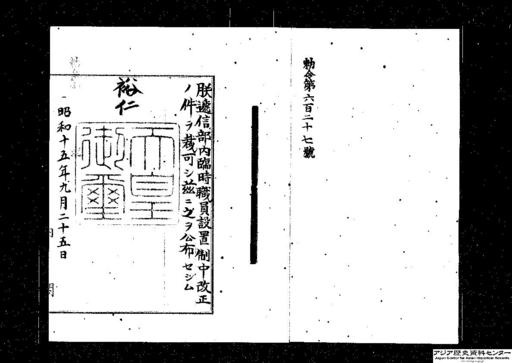 勅令第六百二十七號
朕遞信部內臨時職員設置制中改正
ノ件ヲ裁可シ茲ニ之ヲ公布セシム
裕仁
天皇御璽
昭和十五年九月二十五日
アジア歴史資料センター
Japan Center for Asian Historical Records